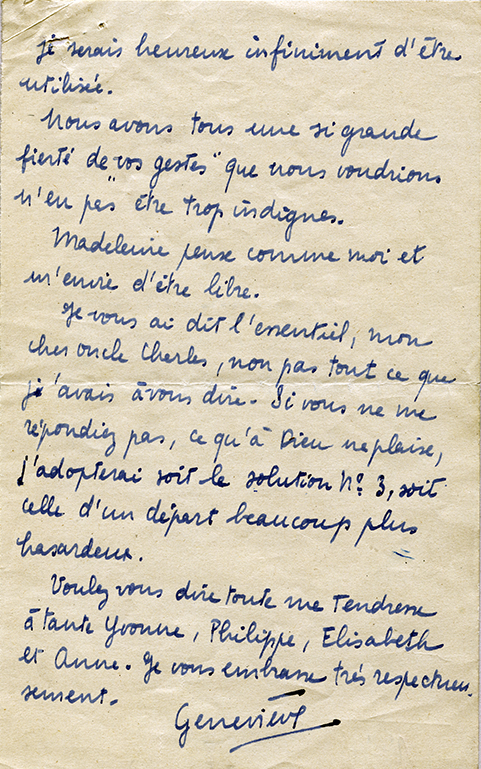 je serais heureux infiniment d'être
utilisée.
Nous avons tous une si grande
fierté de "vos gestes" que nous voudrions
n'en pas être trop indignes.
Madeleine pense comme moi et
m'envie d'être libre.
Je vous ai dit l'essentiel, mon
cher oncle Charles, non pas tout ce que
j'avais à vous dire. Si vous ne me
répondiez pas, ce qu'à Dieu ne plaise,
j'adopterai soit la solution N° 3, soit
celle d'un départ beaucoup plus
hasardeux.
Voulez vous dire toute ma tendresse
à tante Yvonne, Philippe, Elisabeth
et Anne. Je vous embrasse très respectueu
sement.
Geneviève